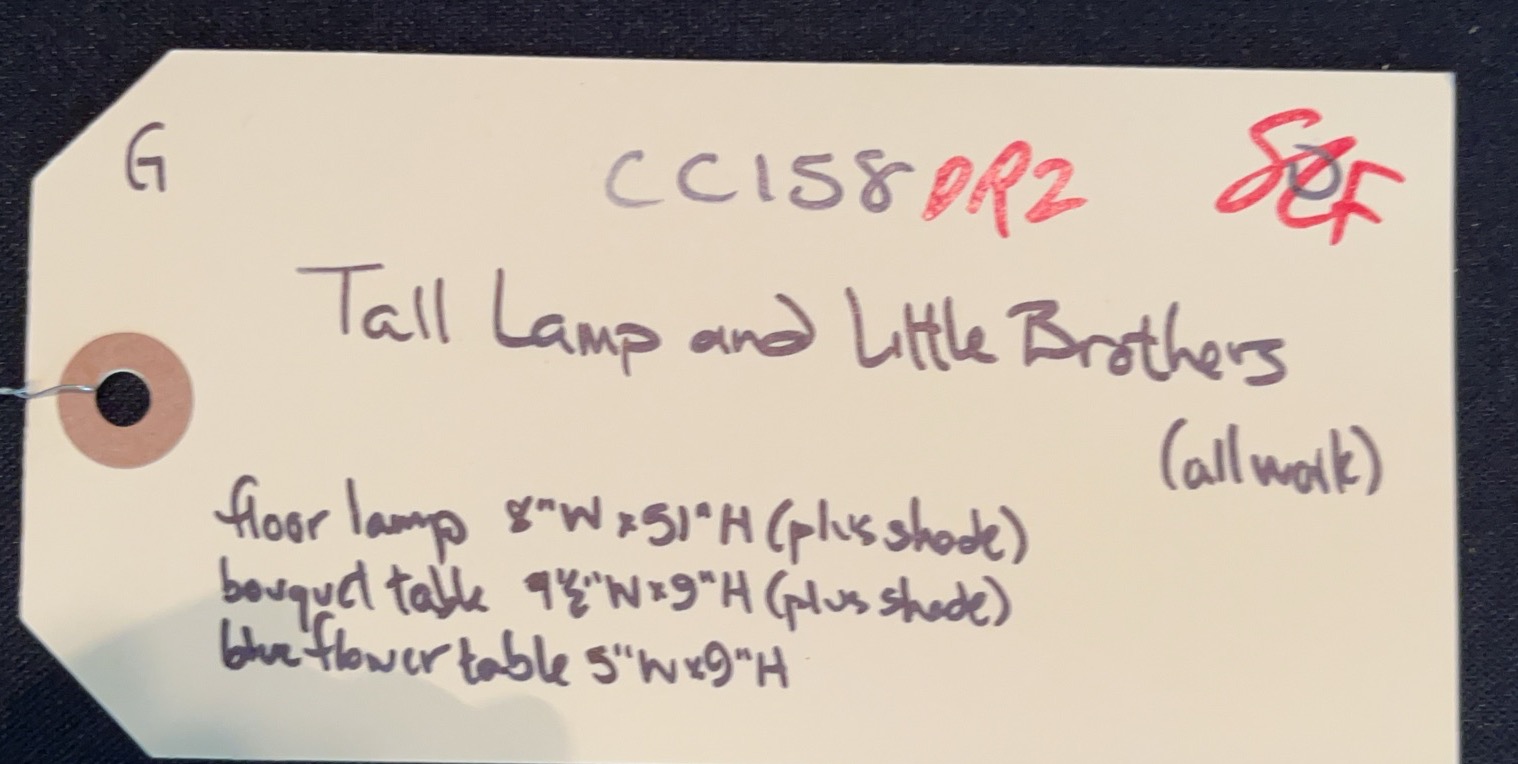 G
CC158 DR2
Tall Lamp and Little Brothers
(all work)
floor lamp 8"W x 51"H (plus shade)
bouquet table 9½"W x 9"H (plus shade)
blue flower table 5"W x 9"H